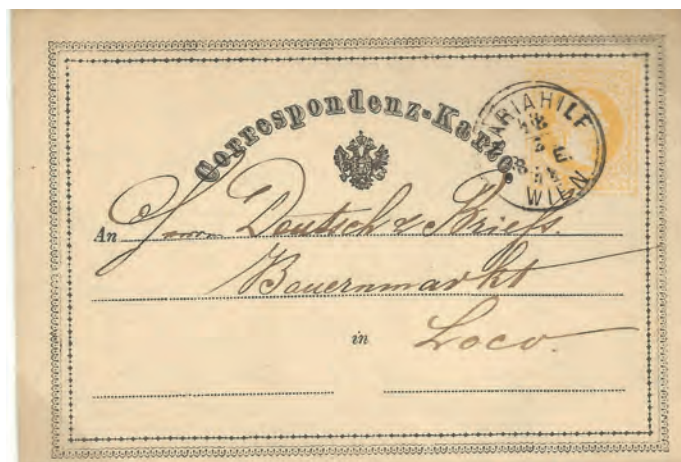 Correspondenz-Karte.
MARIAHILF
WIEN
An Herrn Deutsch &
Bauernmarkt
in Loco.